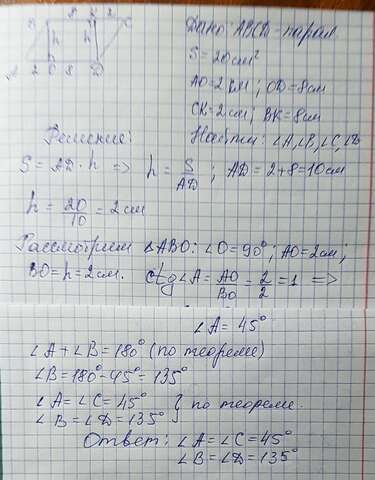 B 8 K 2 C
h h
A 2 O 8 D
Дано: ABCD - парал.
S = 20 см²
AO = 2 см; OD = 8 см
CK = 2 см; BK = 8 см
Найти: ∠A, ∠B, ∠C, ∠D
Решение:
S = AD · h => h = S/AD; AD = 2+8 = 10 см
h = 20/10 = 2 см
Рассмотрим ∆ABO: ∠O = 90°; AO = 2 см;
BO = h = 2 см. ctg∠A = AO/BO = 2/2 = 1 =>
∠A = 45°
∠A + ∠B = 180° (по теореме)
∠B = 180° - 45° = 135°
∠A = ∠C = 45° } по теореме.
∠B = ∠D = 135°
Ответ: ∠A = ∠C = 45°
∠B = ∠D = 135°